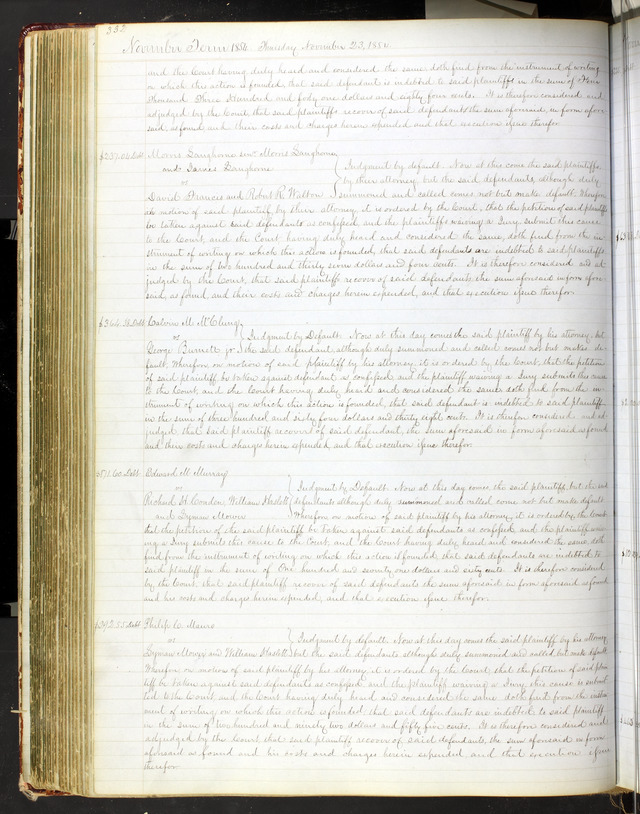 332
November Term 1854. Thursday November 23, 1854.
and the Court having duly heard and considered the same doth find from the instrument of writing
on which this action is founded, that said defendant is indebted to said plaintiffs in the sum of
Thousand Three Hundred and forty one dollars and eighty four cents. It is therefore considered and
adjudged by the Court, that said plaintiffs recover of said defendants the sum aforesaid, in form afore-
said, as found, and their costs and charges herein expended and that execution issue therefor.
$237.04 Debt Morris Langhorne senr. Morris Langhorne
and James Langhorne
vs
David Francis and Robert R. Walton
Judgment by default. Now at this come the said plaintiffs
by their attorney, but the said defendants, although duly
summoned and called comes not but make default. Wherefore
on motion of said plaintiffs by their attorney, it is ordered by the Court, that the petition of said plaintiffs
be taken against said defendants as confessed, and the plaintiffs waiving a Jury, submit this cause
to the Court, and the Court having duly heard and considered the same, doth find from the in-
strument of writing on which this action is founded, that said defendants are indebted to said plaintiffs
in the sum of two hundred and thirty seven dollars and four cents. It is therefore considered and ad-
judged by the Court, that said plaintiffs recover of said defendants the sum aforesaid in form afore-
said, as found and their costs and charges herein expended, and that execution issue therefor.
$364.38 Debt Calvin M. McClung
vs
George Burnett jr.
Judgment by Default. Now at this day comes the said plaintiff by his attorney, but
the said defendant although duly summoned and called comes not but makes de-
fault. Wherefore, on motion of said plaintiff by his attorney, it is ordered by the Court, that the petition
of said plaintiff be taken against defendant as confessed and the plaintiff waiving a Jury submits this cause
to the Court, and the Court having duly heard and considered the same doth find from the in-
strument of writing on which this action is founded, that said defendant is indebted to said plaintiff
in the sum of three hundred and sixty four dollars and thirty eight cents. It is therefore considered and ad-
judged that said plaintiff recover of said defendant, the sum aforesaid in form aforesaid as found
and their costs and charges herein expended, and that execution issue therefor.
$171.60 Debt Edward M. Murray
vs
Richard H. Landon, William Haslett
and Lyman Mowry
Judgment by Default. Now at this day comes the said plaintiff, but the said
defendants although duly summoned and called come not but make default
Wherefore, on motion of said plaintiff by his attorney, it is ordered by the Court,
that the petition of the said plaintiff be taken against said defendants as confessed and the plaintiff waiv-
ing a Jury submits this cause to the Court, and the Court having duly heard and considered the same doth
find from the instrument of writing on which this action is founded, that said defendants are indebted to
said plaintiff in the sum of One hundred and seventy one dollars and sixty cents. It is therefore considered
by the Court, that said plaintiff recover of said defendants the sum aforesaid in form aforesaid as found
and his costs and charges herein expended, and that execution issue therefor.
$292.55 Debt Philip C. Mauro
vs
Lyman Mowry and William Haslett
Judgment by default. Now at this day comes the said plaintiff by his attorney
but the said defendants although duly summoned and called but make default
Wherefore on motion of said plaintiff by his attorney it is ordered by the Court, that the petition of said plain-
tiff be taken against said defendants as confessed and the plaintiff waiving a Jury, this cause is submit-
ted to the Court, and the Court having duly heard and considered the same doth find from the instru-
ment of writing on which this action is founded, that said defendants are indebted to said plaintiff
in the sum of two hundred and ninety two dollars and fifty five cents. It is therefore considered and
adjudged by the Court that said plaintiff recover of said defendants, the sum aforesaid in form
aforesaid as found and his costs and charges herein expended, and that execution issue
therefor.